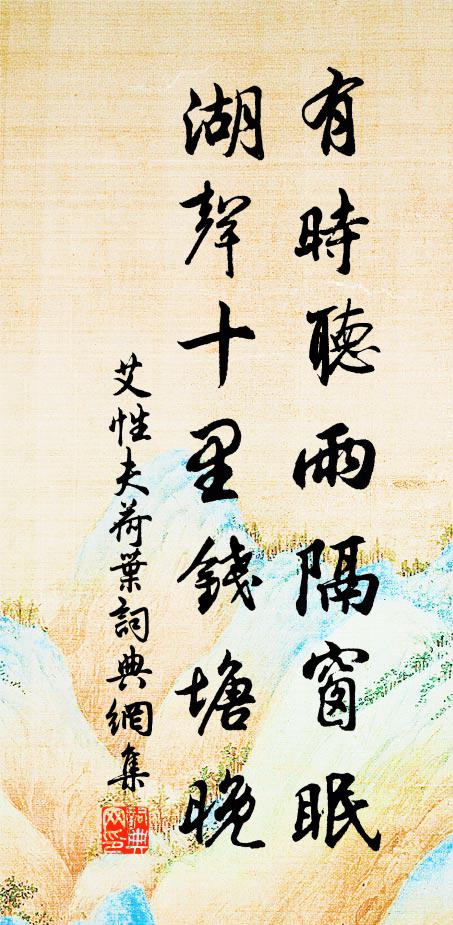 有時聽雨隔窗眠
湖聲十里錢塘晚
艾性夫荷葉詞典網集
詞典网印